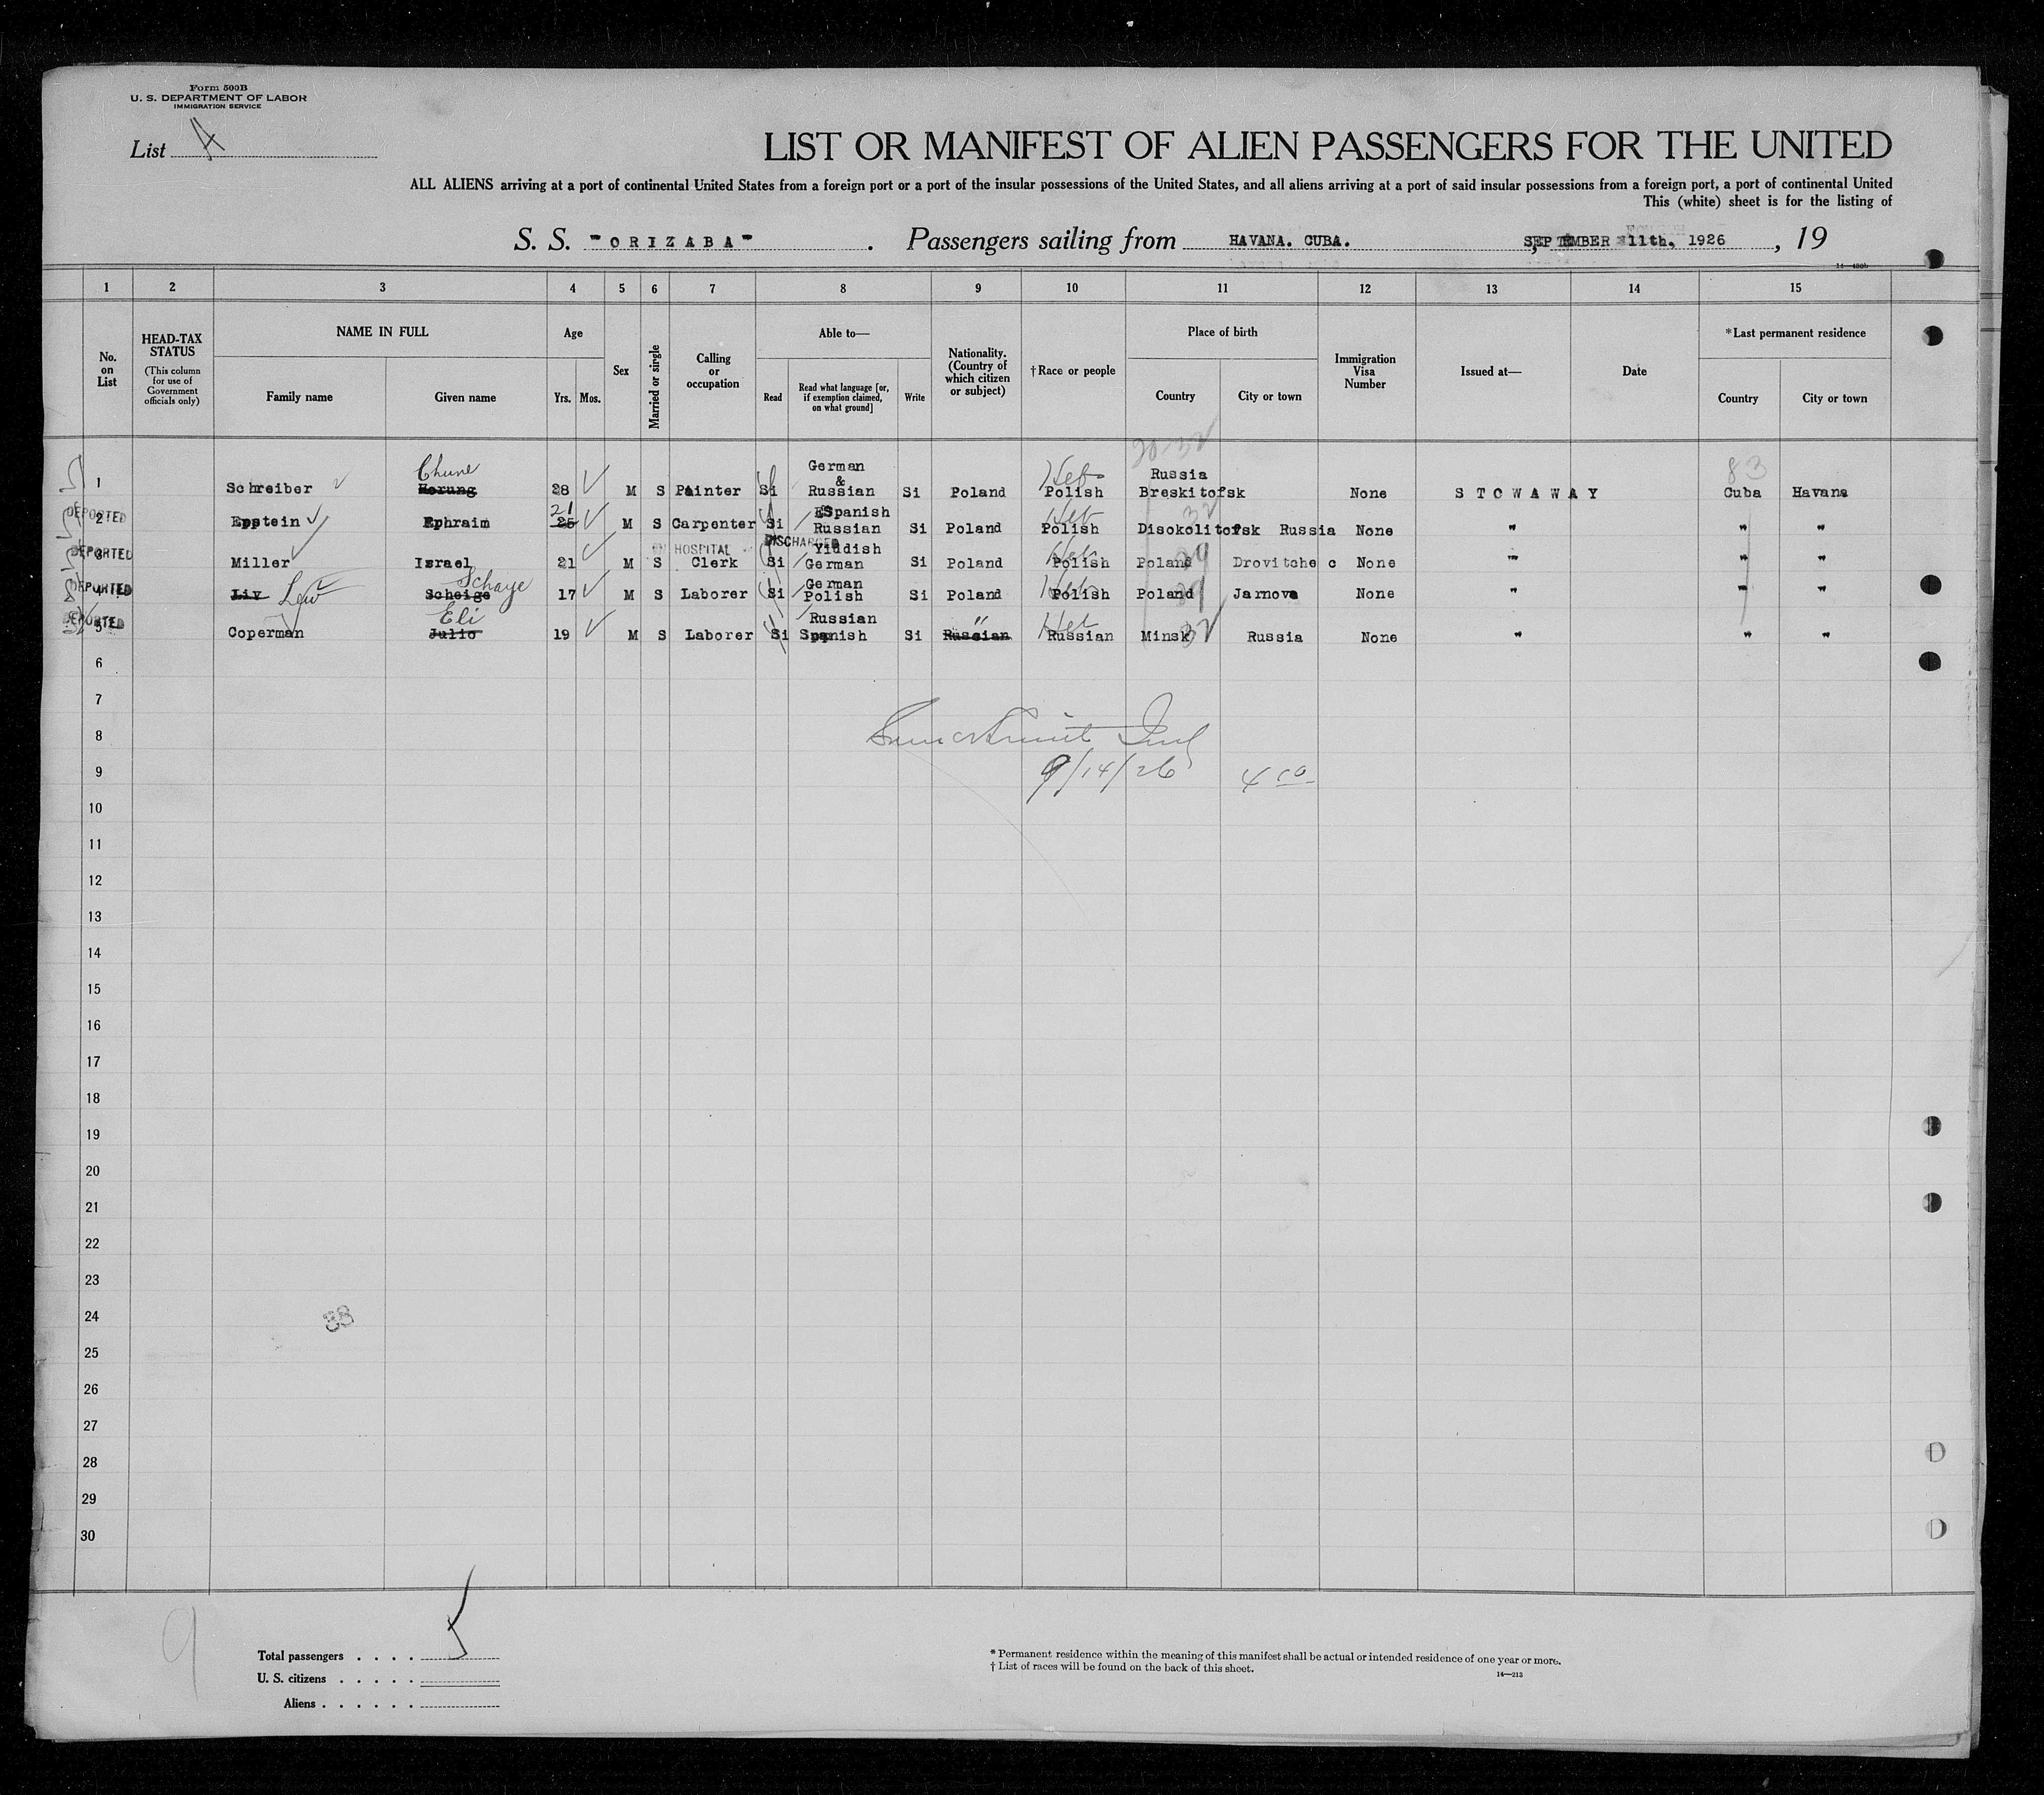 Form 500B
U. S. DEPARTMENT OF LABOR
IMMIGRATION SERVICE
List 4
LIST OR MANIFEST OF ALIEN PASSENGERS FOR THE UNITED
ALL ALIENS arriving at a port of continental United States from a foreign port or a port of the insular possessions of the United States, and all aliens arriving at a port of said insular possessions from a foreign port, a port of continental United
This (white) sheet is for the listing of
S. S. "ORIZABA" . Passengers sailing from HAVANA. CUBA. , SEPTEMBER 11th, 1926 , 19
1 2 3 4 5 6 7 8 9 10 11 12 13 14 15
No. on List
HEAD-TAX STATUS (This column for use of Government officials only)
NAME IN FULL
Family name Given name
Age
Yrs. Mos.
Sex
Married or single
Calling or occupation
Able to—
Read
Read what language [or, if exemption claimed, on what ground]
Write
Nationality. (Country of which citizen or subject)
†Race or people
Place of birth
Country City or town
Immigration Visa Number
Issued at—
Date
*Last permanent residence
Country City or town
20-32
Chune German & Russia 83
1 Schreiber Herung 28 M S Painter Si Russian Si Poland Heb Polish Breskitofsk None STOWAWAY Cuba Havana
DEPORTED 21 Spanish Heb 32
2 Eppstein Ephraim 25 M S Carpenter Si Russian Si Poland Polish Disokolitofsk Russia None " " "
DEPORTED HOSPITAL DISCHARGED Yiddish Heb
3 Miller Israel 21 M S Clerk Si German Si Poland Polish Poland Drovitche c None " " "
DEPORTED Lew Schaye German Heb
4 Liv Scheige 17 M S Laborer Si Polish Si Poland Polish Poland Jarnova None " " "
DEPORTED Eli Russian " Heb 32
5 Coperman Julio 19 M S Laborer Si Spanish Si Russian Russian Minsk Russia None " " "
6
7
8
9 9/14/26
10
11
12
13
14
15
16
17
18
19
20
21
22
23
24
38
25
26
27
28
29
30
9
Total passengers . . . . 5
U. S. citizens . . . . .
Aliens . . . . . .
* Permanent residence within the meaning of this manifest shall be actual or intended residence of one year or more.
† List of races will be found on the back of this sheet.
14—213